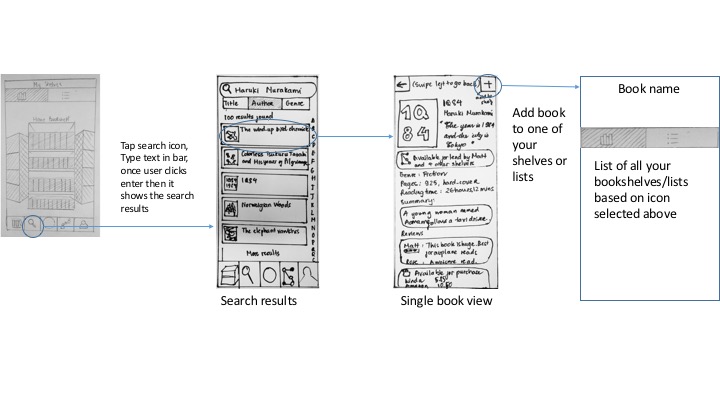 My Shelves
Your Bookshelf
Tap search icon,
Type text in bar,
once user clicks
enter then it
shows the search
results
Haruki Murakami
Title Author Genre
100 results found
The wind-up bird chronicle
Colorless Tsukuru Tazaki
and His years of Pilgrimage
1Q84
Norwegian Woods
The elephant vanishes
More results
A
B
C
D
E
F
G
H
I
J
K
L
M
N
O
P
Q
Search results
(Swipe left to go back) +
1Q84
Haruki Murakami
"The year is 1984
and the city is
Tokyo"
1Q
84
Available for lend by Matt
and 4 other shelves
Genre: Fiction
Pages: 925, hard-cover
Reading time: 26hours 12mins
Summary:
A young woman named
Aomame follows a taxi driver
Reviews
Matt: This book is huge. Best
for airplane reads
Rose: Awesome read
Available for purchase
Single book view
Add book
to one of
your
shelves or
lists
Book name
List of all your
bookshelves/lists
based on icon
selected above